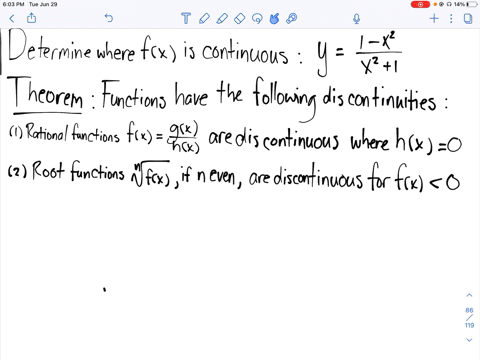 6:03 PM Tue Jun 29 14%
Determine where f(x) is continuous : y = (1-x²)/(x²+1)
Theorem : Functions have the following discontinuities :
(1) Rational functions f(x) = g(x)/h(x) are discontinuous where h(x) = 0
(2) Root functions ⁿ√f(x), if n even, are discontinuous for f(x) < 0
86
/
119